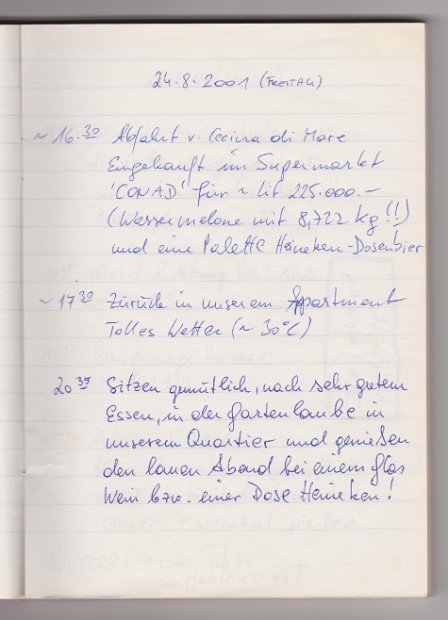 24.8.2001 (FREITAG)
~ 16.30 Abfahrt v. Cecina di Mare
Eingekauft im Supermarkt
'CONAD' für ~ Lit 225.000.-
(Wassermelone mit 8,722 kg!!)
und eine Palette Heineken-Dosenbier
~ 17 30 Zurück in unserem Appartment
Tolles Wetter (~ 30°C)
20 35 Sitzen gemütlich, nach sehr gutem
Essen, in der Gartenlaube in
unserem Quartier und genießen
den lauen Abend bei einem Glas
Wein bzw. einer Dose Heineken!